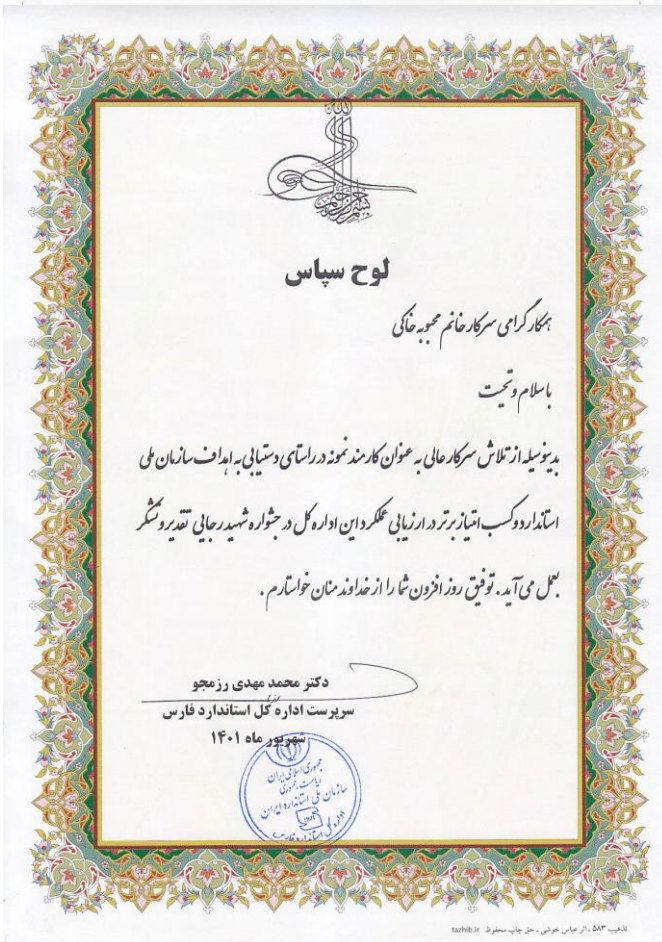 الله
بسم الله الرحمن الرحیم
لوح سپاس
همکار گرامی سرکار خانم محبوبه خاکی
باسلام وتحیت
بدینوسیله از تلاش سرکار عالی به عنوان کارمند نمونه در راستای دستیابی به اهداف سازمان ملی
استاندارد وکسب امتیاز برتر در ارزیابی عملکرد این اداره کل در جشنواره شهید رجایی تقدیر و تشکر
بعمل می آید . توفیق روز افزون شما را از خداوند منان خواستارم .
دکتر محمد مهدی رزمجو
سرپرست اداره کل استاندارد فارس
شهریور ماه ۱۴۰۱
جمهوری اسلامی ایران
ریاست جمهوری
سازمان ملی استاندارد ایران
اداره کل استاندارد فارس
تذهیب ۵۸۳ ـ اثر عباس خوشی ـ حق چاپ محفوظ tazhib.ir